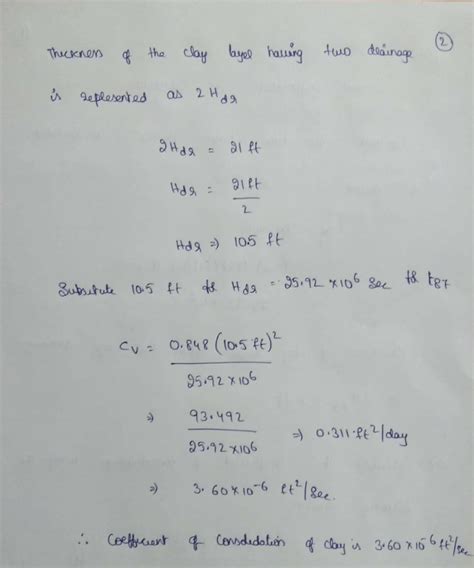 2
Thickness of the clay layer having two drainage
is represented as 2Hdr
2Hdr = 21 ft
Hdr = 21 ft
2
Hdr ⇒ 10.5 ft
Substitute 10.5 ft for Hdr = 25.92 × 10^6 Sec for t87
Cv = 0.848 (10.5 ft)^2
25.92 × 10^6
⇒ 93.492 ⇒ 0.311 ft^2/day
25.92 × 10^6
⇒ 3.60 × 10^-6 ft^2/sec.
∴ Coefficient of Consolidation of clay is 3.60 × 10^-6 ft^2/sec